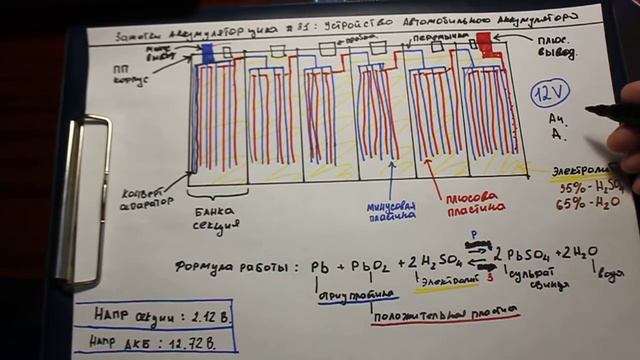 Заметки Аккумуляторщика #31: Устройство Автомобильного Аккумулятора
минус. вывот
пробка
перемычка
плюс. вывод.
ПП корпус
12V
Ач.
А.
Электролит
35% - H₂SO₄
65% - H₂O
конверт-сепаратор
Банка секция
минусовая пластина
плюсова пластина
Формула работы: Pb + PbO₂ + 2H₂SO₄ ⇄ 2PbSO₄ + 2H₂O
Р
З
электролит
сульфат свинца
вода
отриц пластина
положительная пластина
Напр секции: 2.12 В.
Напр АКБ: 12.72 В.